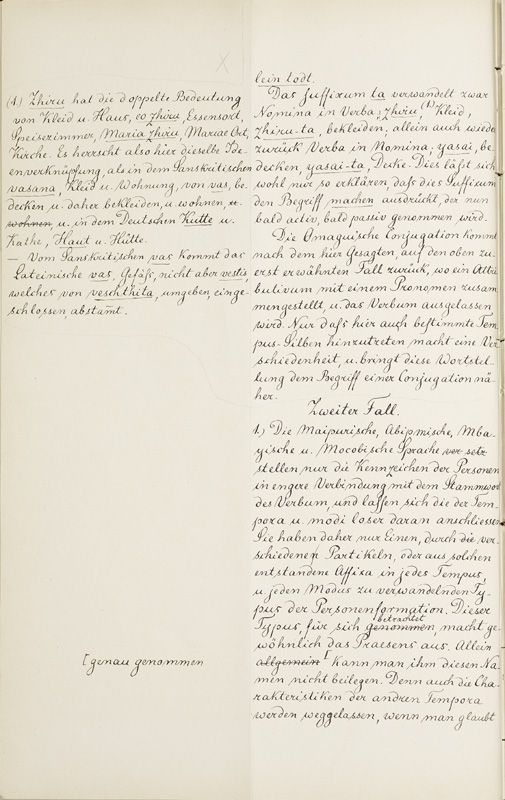 (1.) Zhiru hat die doppelte Bedeutung
von Kleid u Haus, eo zhiru, Essensort,
Speisezimmer, Maria zhiru, Mariae Ort,
Kirche. Es herrscht also hier dieselbe Ide-
enverknüpfung, als in dem Sanskritischen
vasana, Kleid u. Wohnung, von vas, be-
decken u. daher bekleiden, u. wohnen, u.
wohnen, u. in dem Deutschen Kutte u.
Kathe, Haut u. Hütte.
— Vom Sanskritischen vas kommt das
Lateinische vas, Gefäss, nicht aber vestis,
welches von veschthita, umgeben einge-
schlossen, abstamt.
[genau genommen
lein todt.
Das Suffixum ta verwandelt zwar
Nomina in Verba; zhiru, (1.) Kleid,
zhiru-ta, bekleiden, allein auch wieder
zurück Verba in Nomina; yasai, be-
decken, yasai-ta, Decke. Dies läßt sich
wohl nur so erklären, daß dies Suffixum
den Begriff machen ausdrückt, der nun
bald activ, bald passiv genommen wird.
Die Omaguische Conjugation kommt
nach dem hier Gesagten, auf den oben zu-
erst erwähnten Fall zurück, wo ein Attri-
butivum mit einem Pronomen zusam-
mengestellt, u. das Verbum ausgelassen
wird. Nur daß hier auch bestimmte Tem-
pus-Silben hinzutreten macht eine Ver-
schiedenheit, u. bringt diese Wortstel-
lung dem Begriff einer Conjugation nä-
her.
Zweiter Fall.
1.) Die Maipurische, Abipmische, Mba-
yische u. Mocobische Sprache ver setz
stellen nur die Kennzeichen der Personen
in engere Verbindung mit dem Stammwort
des Verbum, und lassen sich die der Tem-
pora u. modi loser daran anschliessen
Sie haben daher nur Einen, durch die ver-
schiedenen Partikeln, oder aus solchen
entstandene Affixa in jedes Tempus,
u. jeden Modus zu verwandelnden Ty-
pus der Personenformation. Dieser
betrachtet
Typus, für sich genommen, macht ge-
wöhnlich das Praesens aus. Allein
allgemein [ kann man ihm diesen Na-
men nicht beilegen. Denn auch die Cha-
rakteristiken der andren Tempora
werden weggelassen, wenn man glaubt